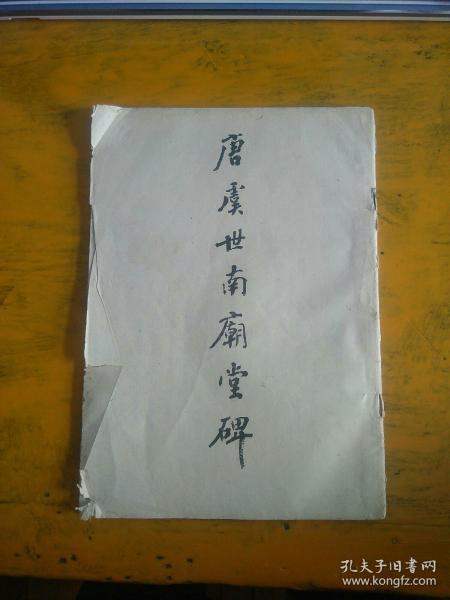 唐虞世南廟堂碑
孔夫子旧书网
www.kongfz.com